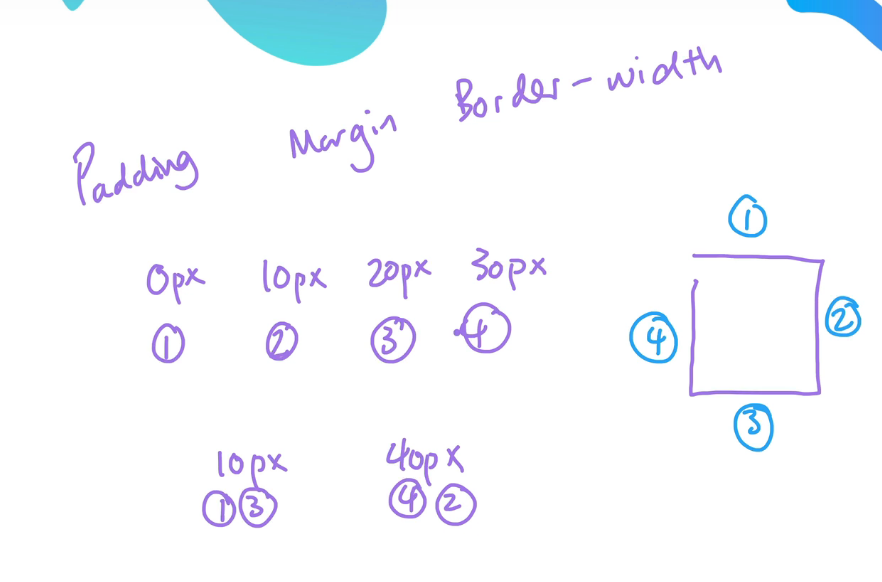 Padding Margin Border-width
①
0px 10px 20px 30px
① ② ③ ④
④ ②
③
10px 40px
①③ ④②